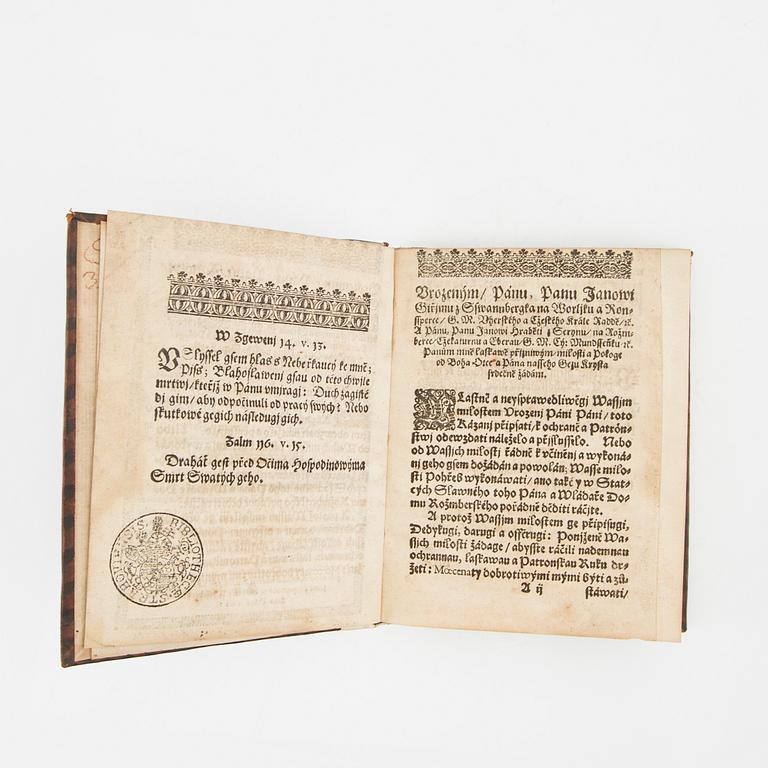 W Zgewenj 14. v. 13.
VSlyssel gsem hlas s Nebe řkaucý ke mně;
Pišs; Blahoslawenj gsau od této chwjle
mrtwj / kteřjž w Pánu vmjragj: Duch zagisté
dj gim / aby odpočinuli od pracý swých? Nebo
skutkowé gegich následugj gich.
Žalm 116. v. 15.
Drahář gest před Očima Hospodinowýma
Smrt Swatých geho.
BIBLIOTHECÆ STRAHOUIENSIS
Vrozeným / Pánu, Panu Janowi
Giřjmu z Sswannbergka na Worljku a Ron-
ssperce / G. M. Vherského a Cžeského Krále Raddě / ꝛc.
A Pánu, Panu Janowi Hraběti z Serynu / na Rožm-
berce / Cžekaturnu a Eberau / G. M. Cý: Mundssenku ꝛc.
Panům mně laskawě přjzniwým / milosti a Pokoge
od Boha Otce a Pána nasseho Gezu Krysta
srdečně žádám.
WLastně a neysprawedliwěgj Wassjm
milostem Vrozenj Páni Páni / toto
Kázanj připsati / k ochraně a Patrón-
stwj odewzdati náleželo a přjslusselo. Nebo
od Wassjch milostj řádně k včiněnj a wykoná-
nj geho gsem dožádán a powolán; Wasse milo-
sti Pohřeb wykonáwati / ano také y w Stat-
cých Slawného toho Pána a Wládaře Do-
mu Rožmberského pořádně děditi ráčjte.
A protož Wassjm milostem ge připisugi,
Dedykugi, darugi a offerugi: Ponjženě Wa-
ssjch milostj žádage / abyste ráčili nademnau
ochrannau, laskawau a Patronskau Ruku dr-
žeti: Mœcenaty dobrotiwými mými býti a zů-
A ij
stáwati /